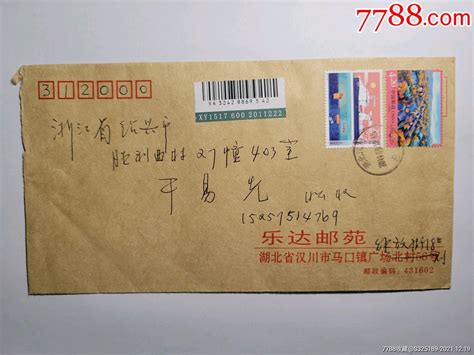 7788.com
312000
XA 3242 8869 5 42
XY1517 600 2011222
浙江省绍兴市
胜利西村27幢403室
收
15057514769
乐达邮苑
湖北省汉川市马口镇广场北村56号
邮政编码：431602
7788收藏@S325169-2021.12.19